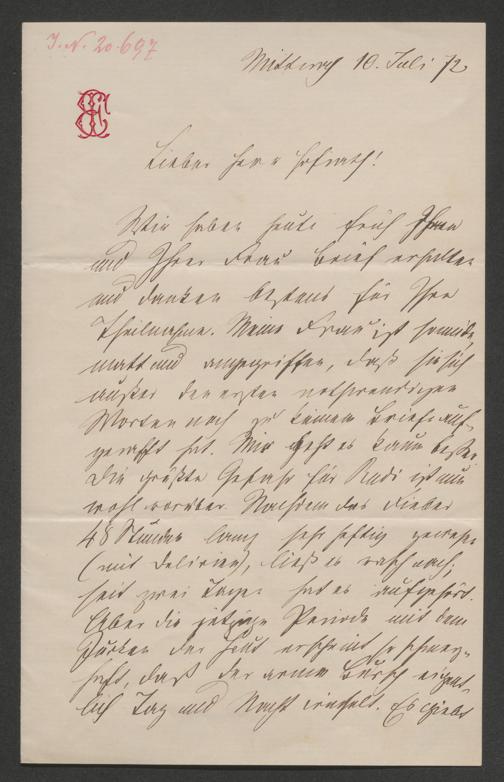 I. N. 20.697
Mittwoch 10. Juli 72
Lieber Herr Hofrath!
Wir haben heute früh Ihren
und Ihrer Frau Brief erhalten
und danken bestens für Ihre
Theilnahme. Meine Frau ist so müde,
matt und angegriffen, daß sie sich
außer den ersten nothwendigen
Worten noch zu keinem Briefe auf-
gerafft hat. Mir geht es kaum besser.
Die größte Gefahr für Rudi ist nun
wohl vorüber. Nachdem das Fieber
48 Stunden lang sehr heftig gewesen
(mit Delirien), ließ es rasch nach;
seit zwei Tagen hat es aufgehört.
Aber die jetzige Periode mit dem
Jucken der Haut erscheint so schmerz-
haft, daß der arme Bursch eigent-
lich Tag und Nacht winselt. Es giebt